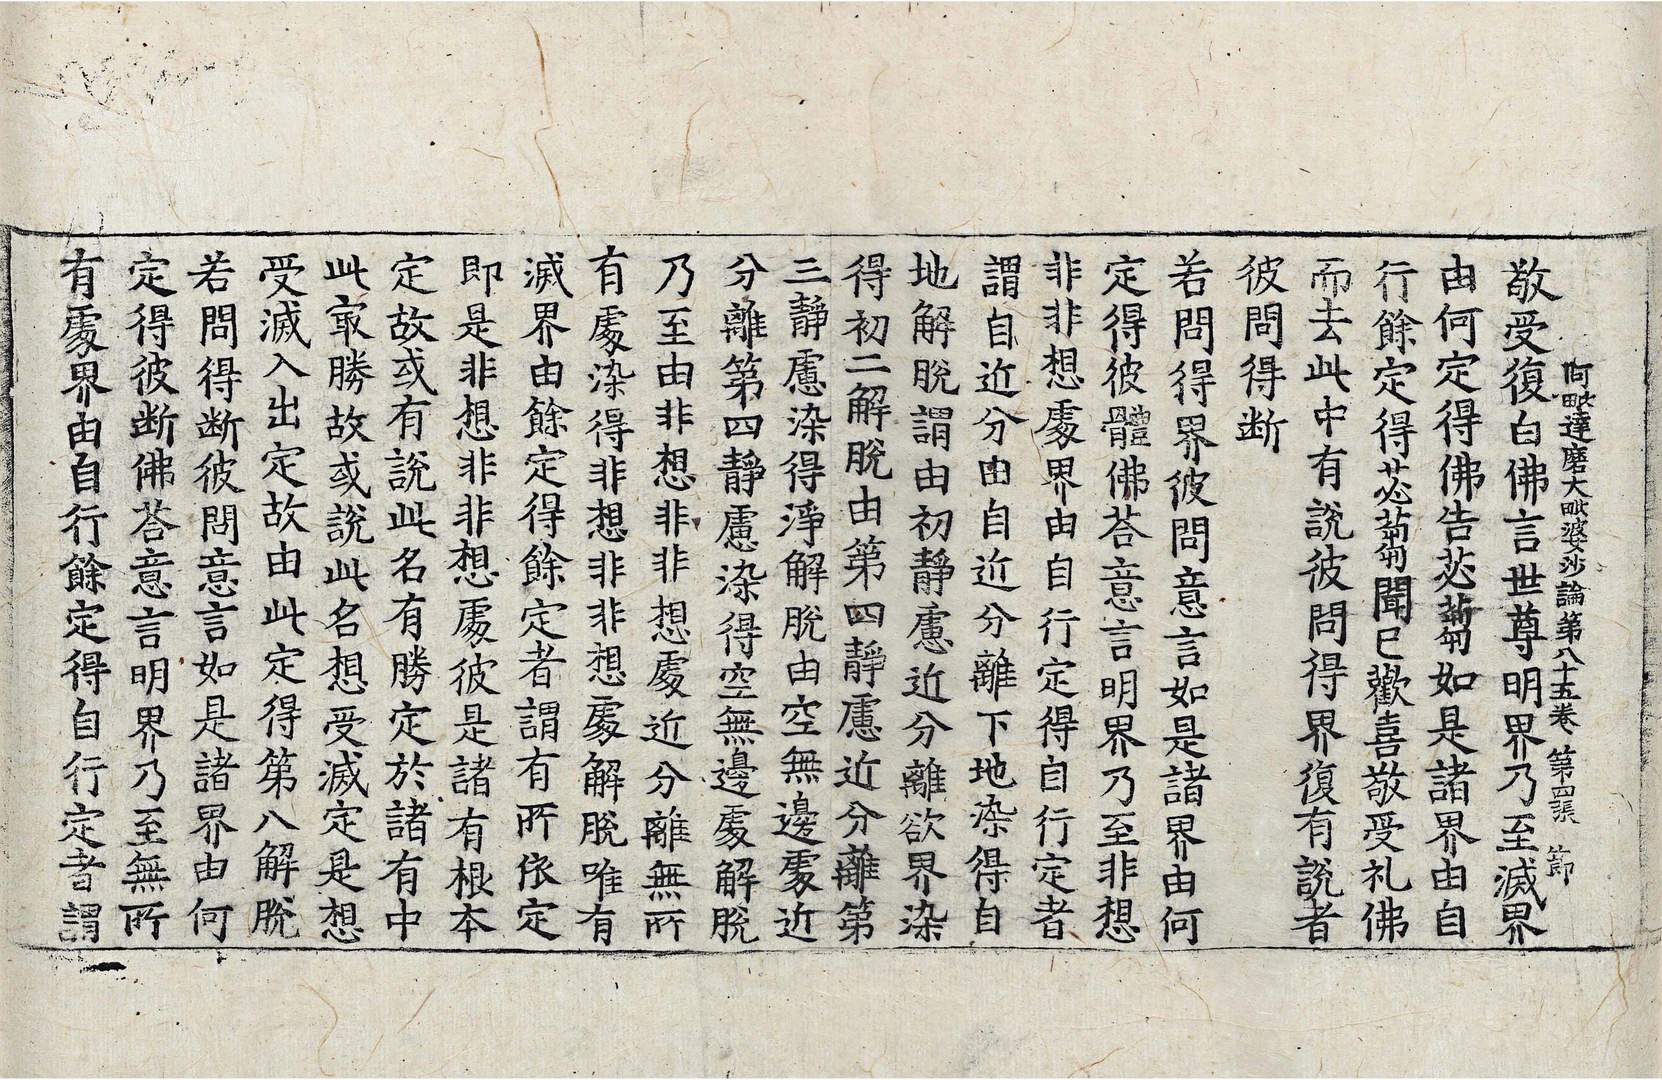 阿毗達磨大毗婆沙論第八十五卷 第四張 節
敬受復白佛言世尊明界乃至滅界
由何定得佛告苾蒭如是諸界由自
行餘定得苾蒭聞已歡喜敬受礼佛
而去此中有說彼問得界復有說者
彼問得断
若問得界彼問意言如是諸界由何
定得彼體佛荅意言明界乃至非想
非非想處界由自行定得自行定者
謂自近分由自近分離下地染得自
地解脫謂由初靜慮近分離欲界染
得初二解脫由第四靜慮近分離第
三靜慮染得淨解脫由空無邊處近
分離第四靜慮染得空無邊處解脫
乃至由非想非非想處近分離無所
有處染得非想非非想處解脫唯有
滅界由餘定得餘定者謂有所依定
即是非想非非想處彼是諸有根本
定故或有說此名有勝定於諸有中
此㝡勝故或說此名想受滅定是想
受滅入出定故由此定得第八解脫
若問得断彼問意言如是諸界由何
定得彼断佛荅意言明界乃至無所
有處界由自行餘定得自行定者謂